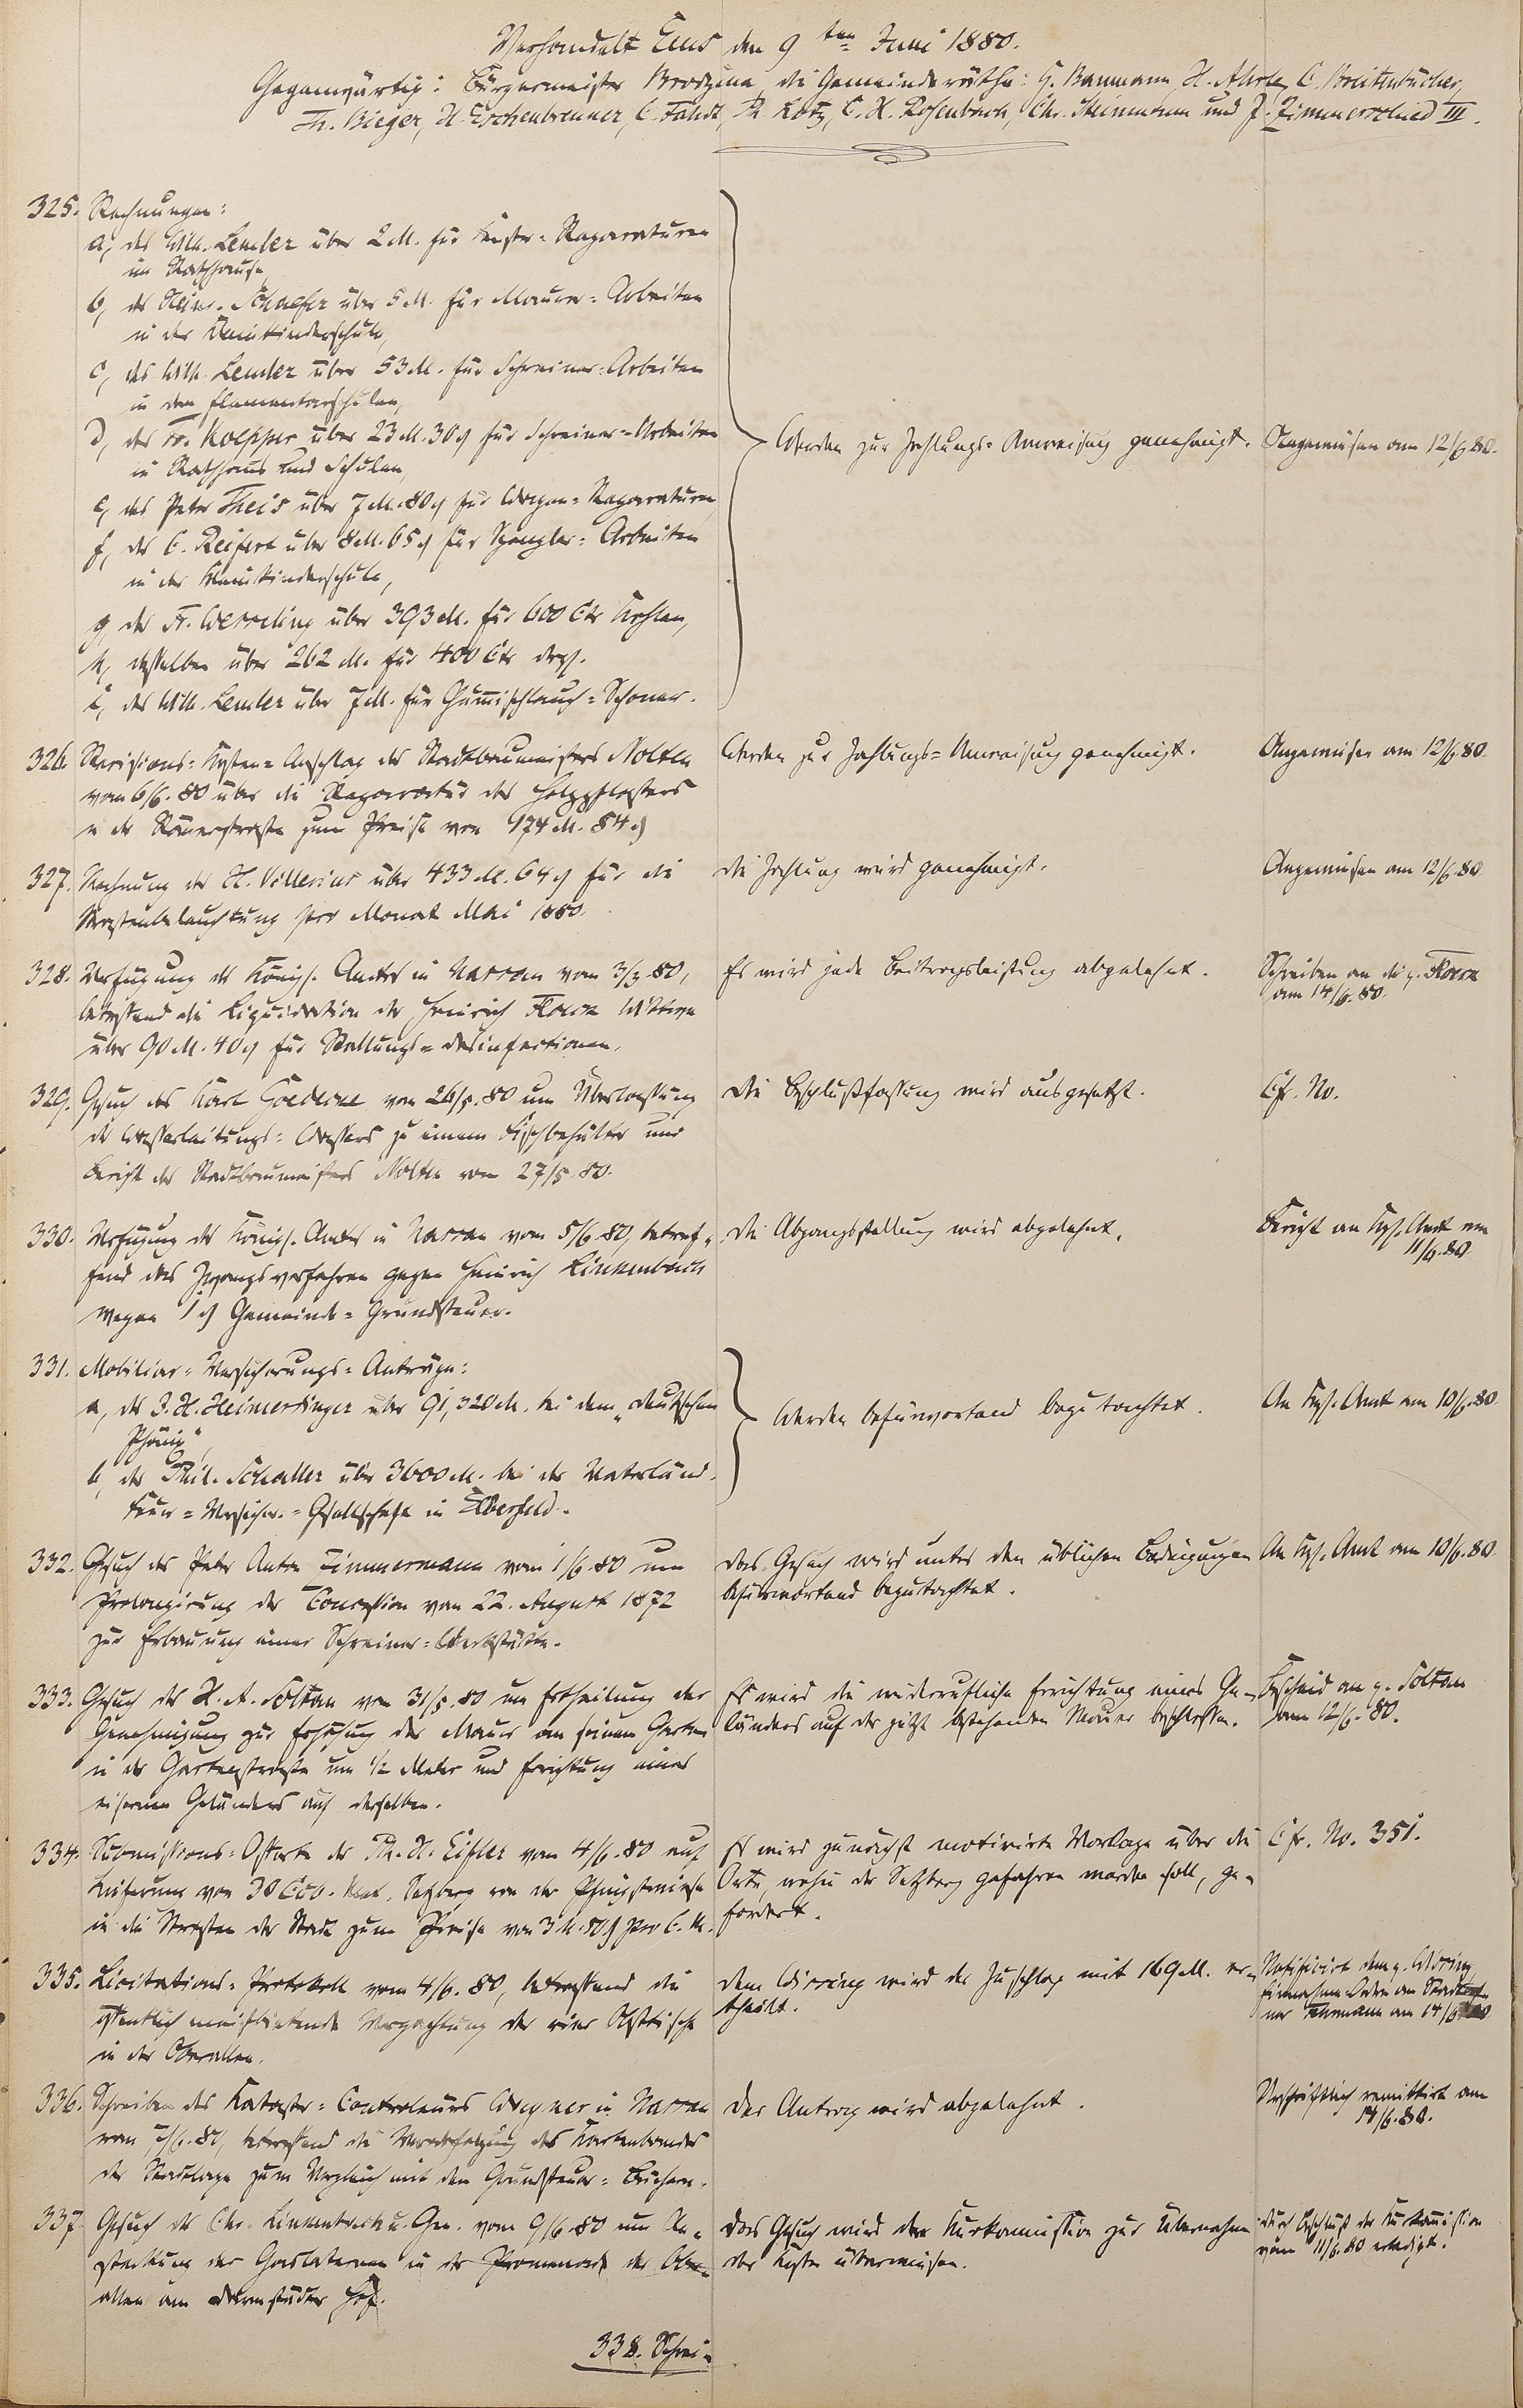 Verhandelt Ems den 9ten Juni 1880.
Gegenwärtig: Bürgermeister Brodzina, die Gemeinderäthe: G. Baumann, H. C. Breitenbücher,
Th. Bieger, H. Eschenbrenner, C. Fahdt, Ph. Kotz, C. H. Rosenbach, Chr. und J. Zimmerschied III.
325. Rechnungen:
a, des Wilh. Lemler über 2 M. für Fenster-Reparaturen
im Rathhause,
b, des Heinr. Schaefer über 5 M. für Maurer-Arbeiten
in der Kleinkinderschule,
c, des Wilh. Lemler über 53 M. für Schreiner-Arbeiten
in den Elementarschulen,
d, des W. Koepper über 23 M. 30 ₰ für Schreiner-Arbeiten
in Rathhaus und Schulen,
e, des Peter Theis über 7 M. 80 ₰ für Wagen-Reparaturen
f, des C. Reifert über 8 M. 65 ₰ für Spengler-Arbeiten
in der Kleinkinderschule,
g des Fr. Wesseling über 393 M. für 600 Ctr Kohlen,
h, desselben über 262 M. für 400 Ctr desgl.
i, des Wilh. Lemler über 7 M. für Gummischlauch-Schoner.
Werden zur Zahlungs-Anweisung genehmigt.
Angewiesen am 12/6 80.
326. Revisions-Kosten-Anschlag des Stadtbaumeisters Nolten
vom 6/6. 80 über die Reparatur des Holzpflasters
in der Römerstraße zum Preise von 974 M. 84 ₰
Werden zur Zahlungs-Anweisung genehmigt.
Angewiesen am 12/6 80.
327. Rechnung des H. Villerius über 433 M. 64 ₰ für die
Straßenbeleuchtung pro Monat Mai 1880.
Die Zahlung wird genehmigt.
Angewiesen am 12/6 80.
328. Verfügung des Königl. Amtes in Nassau vom 3/3 80,
betreffend die Liquidation der Heinrich Wittwe
über 90 M. 40 ₰ für Stallungs-Desinfectionen.
Es wird jede Beitragsleistung abgelehnt.
Schreiben an die p.
am 14/6. 80.
329. Gesuch des Karl Goedecke vom 26/5. 80 um Überlassung
des Wasserleitungs-Wassers zu einem Fischbehälter und
Bericht des Stadtbaumeisters Nolten vom 27/5. 80.
Die Beschlußfassung wird ausgesetzt.
Cfr. No.
330. Verfügung des Königl. Amtes in Nassau vom 5/6 80, betref-
fend das Zwangsverfahren gegen Heinrich Linkenbach
wegen 1 ₰ Gemeinde-Grundsteuer.
Die Abgangsstellung wird abgelehnt.
Bericht an Kgl. Amt am
11/6. 80.
331. Mobiliar-Versicherungs-Anträge:
a, des J. H. Heimerdinger über 91,320 M. bei dem "Deutschen
Phönix",
b, des Phil. Schaller über 3600 M. bei der Vaterländ.
Feuer-Versicher.-Gesellschaft in Elberfeld.
Werden befürwortend begutachtet.
An Kgl. Amt am 10/6. 80.
332. Gesuch des Peter Anton Zimmermann vom 1/6. 80 um
Prolongirung der Concession vom 22. August 1872
zur Erbauung einer Schreiner-Werkstätte.
Das Gesuch wird unter den üblichen Bedingungen
befürwortend begutachtet.
An Kgl. Amt am 10/6. 80.
333. Gesuch des H. A. Soltan vom 31/5. 80 um Ertheilung der
Genehmigung zur Erhöhung der Mauer an seinem Garten
in der Gartenstraße um 1/2 Meter und Errichtung eines
eisernen Geländers auf derselben.
Es wird die widerrufliche Errichtung eines Ge-
länders auf der jetzt bestehenden Mauer beschlossen.
Bescheid an p. Soltan
am 12/6. 80.
334. Submissions-Offerte des Ph. H. Eisler vom 4/6. 80 auf
Lieferung von 30 Cub. Met. Setzberg von der Pfingstwiese
in die Straßen der Stadt zum Preise von 3 M. 80 ₰ pro C. M.
Es wird zunächst motivirte Vorlage über die
Orte, wohin der Setzberg gefahren werden soll, ge-
fordert.
Cfr. No. 351.
335. Licitations-Protokoll vom 4/6. 80, betreffend die
öffentlich meistbietende Verpachtung der vier Obsttische
in der Oberallee.
Dem Wissing wird der Zuschlag mit 169 M. er-
theilt.
Notificirt dem p. Wissing
Einnahme-Ordre an Stadtrech-
ner Fuhrmann am 14/6 80
336. Schreiben des Kataster-Controleurs Wegner in Nassau
vom 7/6. 80, betreffend die des Kartenbandes
der Stadtlage zum Vergleich mit den Grundsteuer-Büchern.
Der Antrag wird abgelehnt.
Urschriftlich remittirt am
14/6. 80.
337. Gesuch des Chr. Linkenbach u. Gen. vom 9/6. 80 um An-
steckung der Gaslaternen in der Promenade der Ober-
allee am Darmstädter Hof.
Das Gesuch wird der Kurkommission zur Übernahme
der Kosten überwiesen.
Durch Beschluß der Kurkommission
vom 11/6. 80 erledigt.
338. Schrei-